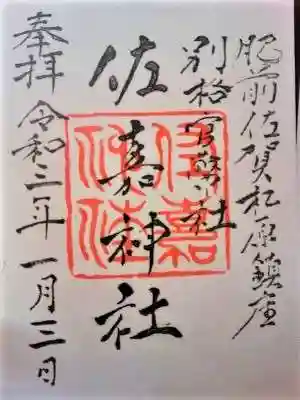 肥前佐賀松原鎮座
別格官幣社
佐嘉神社
奉拝 令和三年一月三日